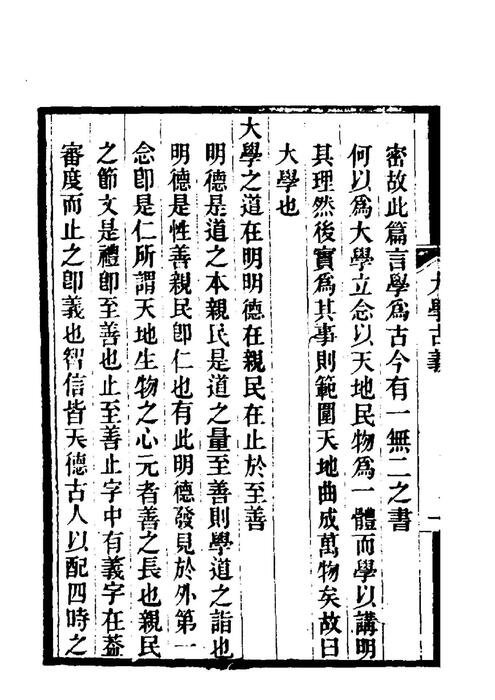 密故此篇言學爲古今有一無二之書
何以爲大學立念以天地民物爲一體而學以講明
其理然後實爲其事則範圍天地曲成萬物矣故曰
大學也
大學之道在明明德在親民在止於至善
明德是道之本親民是道之量至善則學道之詣也
明德是性善親民卽仁也有此明德發見於外第一
念卽是仁所謂天地生物之心元者善之長也親民
之節文是禮卽至善也止至善止字中有義字在葢
審度而止之卽義也智信皆天德古人以配四時之
大學古義
一